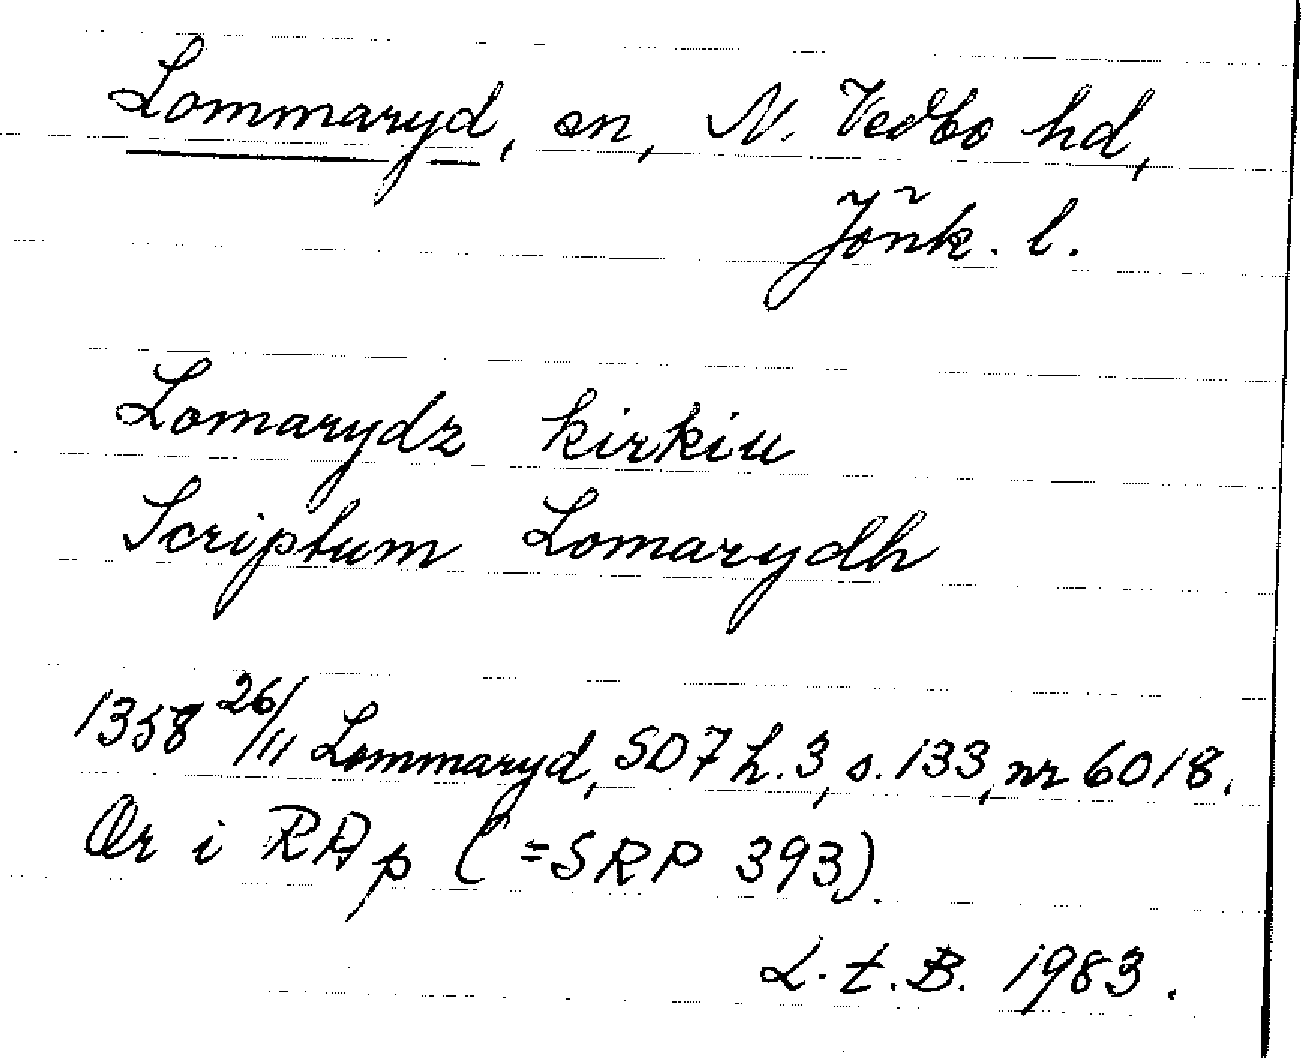 Lommaryd, sn, N. Vedbo hd,
Jönk. l.
Lomarydz kirkiu
Scriptum Lomarydh
1358 26/11 Lommaryd, SD7 h. 3, s. 133, nr 6018.
Or i RAp (=SRP 393).
L. t. B. 1983.